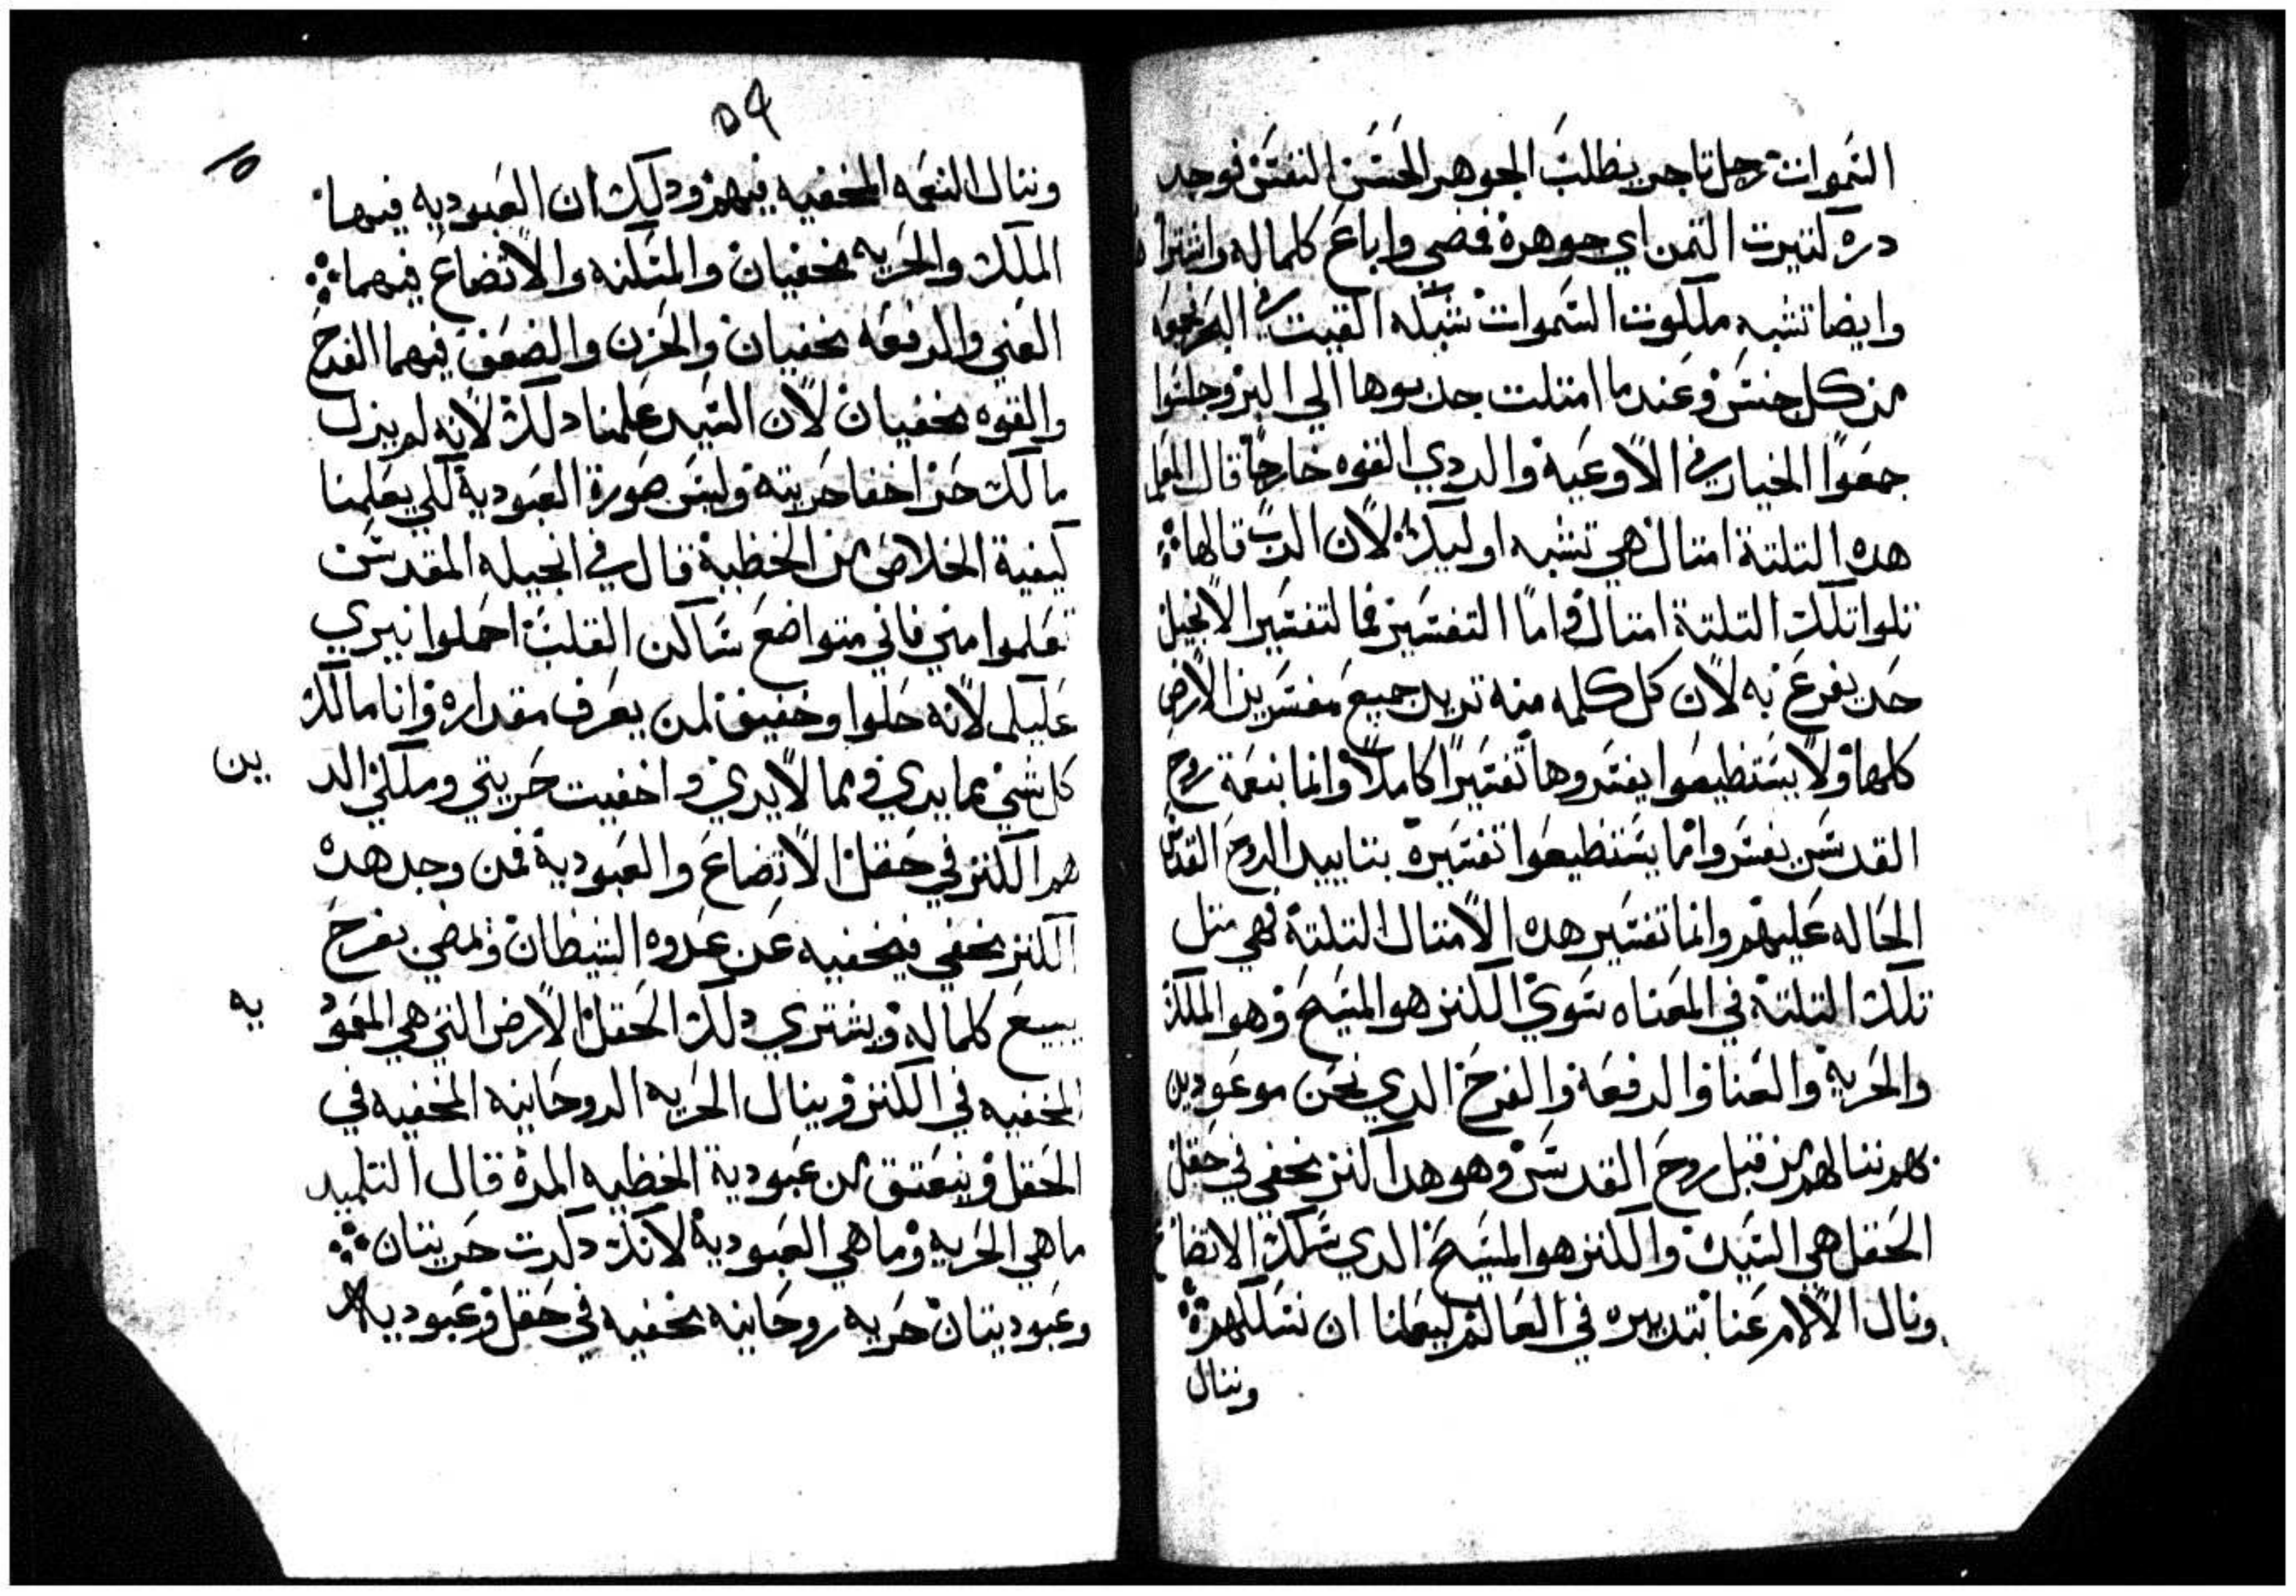 السموات رجل تاجر يطلب الجوهر الحسن النفس فوجد
دره كتيرت التمن اي جوهرة فمضي واباع كلماله واشتراها
وايضا تشبه ملكوت السموات شبكه القيت في البحر فجمعة
من كل جنس وعندما امتلت جدبوها الي البر وجلسوا
جمعوا الخيار في الاوعية والردي القوه خارجا قال المعلم
هده التلتة امتال هي تشبه اوليك لان الرب قالها
تلوا تلك التلتة امتال واما التفسير فما لتفسير الانجيل
حد يفرغ به لان كل كلمه منه تريد جميع مفسرين الارض
كلها ولا يستطيعوا يفسروها تفسيرا كاملا وانما بنعمة روح
القدس يفسروا انما يستطيعوا تفسيرة بتاييد الروح القدس
الحاله عليهم وانما تفسير هده الامتال التلتة فهي متل
تلك التلتة في المعناه سوي الكنز هو المسيح وهو الملك
والحرية والغنا والرفعة والفرح الدي نحن موعودين
بهم ننالهم من قبل روح القدس وهو هدا كنز مخفي في حقل
الحقل هي السيد والكنز هو المسيح الدي سلك الاتضاع
ونال الالام عنا بتدبيره في العالم ليعلمنا ان نسلكهم
وننال
٥٩
١٥
وننال النعمه المخفيه فيهم ودلك ان العبوديه فيها
الملك والحريه مخفيان والمسكنه والاتضاع فيهما
الغني والرفعه مخفيان والحزن والضعف فيهما الفرح
والقوه مخفيان لان السيد علمنا دلك لانه لم يزل
مالك حر اخفا حريته ولبس صورة العبودية لكي يعلمنا
كيفية الخلاص من الخطية قال في انجيله المقدس
تعلموا مني فاني متواضع ساكن القلب احملوا نيري
عليكم لانه حلوا وخفيف لمن يعرف مقداره وانا مالك
كل شي بما يدري وبما لا يدري واخفيت حريتي وملكي الد
ين
هدا الكنز في حقل الاتضاع والعبودية فمن وجد هده
الكنز مخفي فيخفيه عن عدوه الشيطان ويمضي بفرح
يبيع كلماله ويشتري دلك الحقل الارض التي هي المعمود
يه
المخفيه في الكنز وينال الحريه الروحانيه المخفيه في
الحقل وينعتق من عبودية الخطيه المرة قال التلميد
ماهي الحريه وماهي العبودية لانك دكرت حريتان
وعبوديتان حريه روحانيه مخفيه في حقل وعبوديه